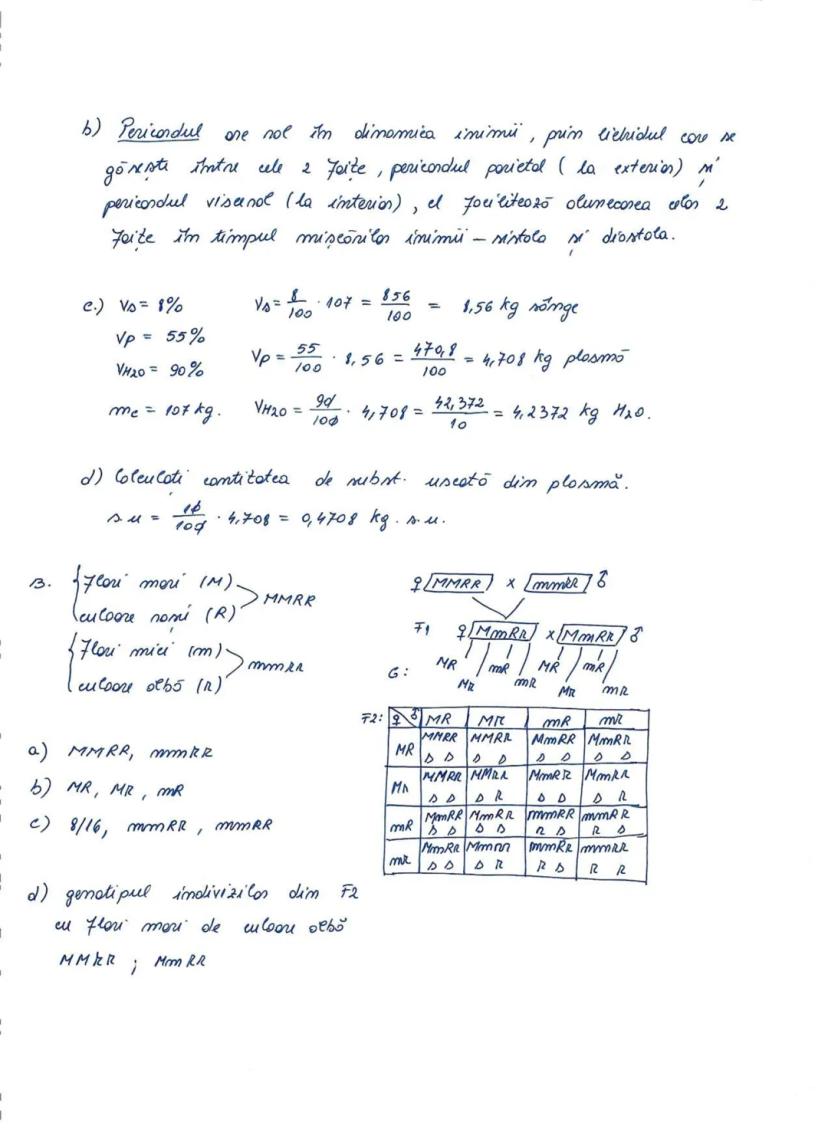 b) Pericardul are rol în dinamica inimii, prin lichidul care se
găsește între cele 2 foițe, pericardul parietal (la exterior) și
pericardul visceral (la interior), el facilitează alunecarea celor 2
foițe în timpul mișcărilor inimii – sistola și diastola.
c.) Vs = 8% Vs = 8/100 · 107 = 856/100 = 8,56 kg sânge
Vp = 55% Vp = 55/100 · 8,56 = 470,8/100 = 4,708 kg plasmă
VH2O = 90%
mc = 107 kg. VH2O = 90/100 · 4,708 = 42,372/10 = 4,2372 kg H2O.
d) Calculați cantitatea de subst. uscată din plasmă.
s.u = 10/100 · 4,708 = 0,4708 kg. s.u.
B. Flori mari (M)
culoare roșii (R) MMRR
Flori mici (m)
culoare albă (r) mmrr
♀ MMRR x mmrr ♂
F1 ♀ MmRr x MmRr ♂
G: MR Mr mR mr MR Mr mR mr
F2: ♀ ♂ MR Mr mR mr
MR MMRR MMRr MmRR MmRr
D D D D D D D D
Mr MMRr MMrr MmRr Mmrr
D D D R D D D R
mR MmRR MmRr mmRR mmRr
D D D D R D R D
mr MmRr Mmrr mmRr mmrr
D D D R R D R R
a) MMRR, mmrr
b) MR, Mr, mR
c) 8/16, mmRR, mmRr
d) genotipul indivizilor din F2
cu flori mari de culoare albă
MMrr ; Mmrr